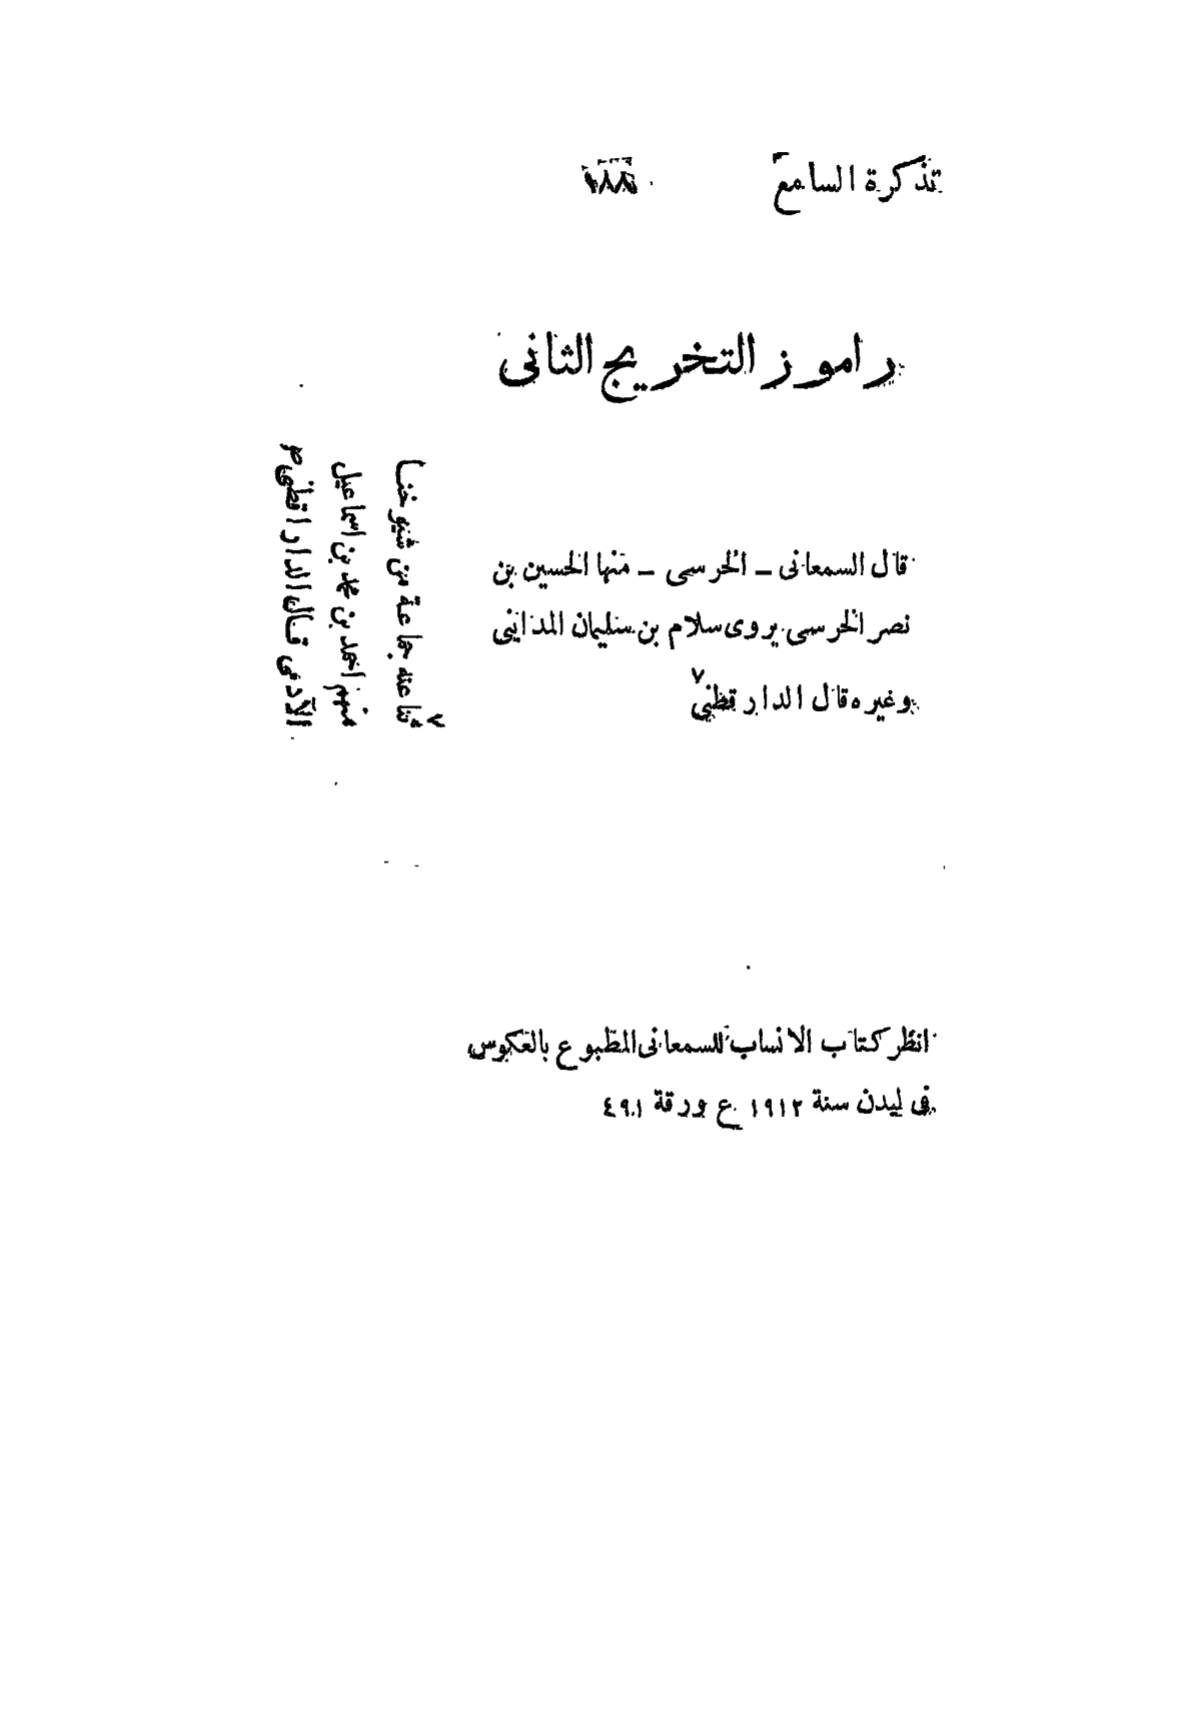 تذكرة السامع ١٨٨
راموز التخريج الثانى
قال السمعانى ــ الخرسى ــ منها الحسين بن
نصر الخرسى يروى سلام بن سليمان المدائنى
وغيره قال الدارقطنى ٧
٧ ثنا عنه جماعة من شيوخنا
منهم احمد بن محمد بن اسماعيل
الآدمى قال الدارقطنى صح
انظر كتاب الانساب للسمعانى المطبوع بالعكوس
فى ليدن سنة ١٩١٢ ع ورقة ٤٩١